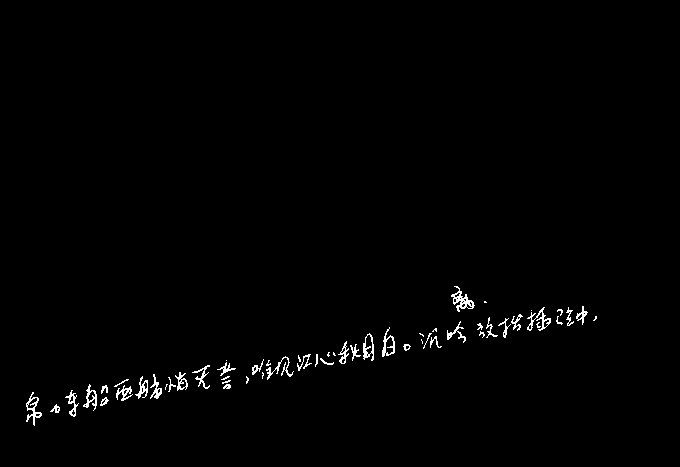 帛。东船西舫悄无言,唯见江心秋月白。沉吟放拨插弦中,